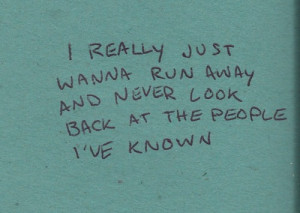 I REALLY JUST
WANNA RUN AWAY
AND NEVER LOOK
BACK AT THE PEOPLE
I'VE KNOWN